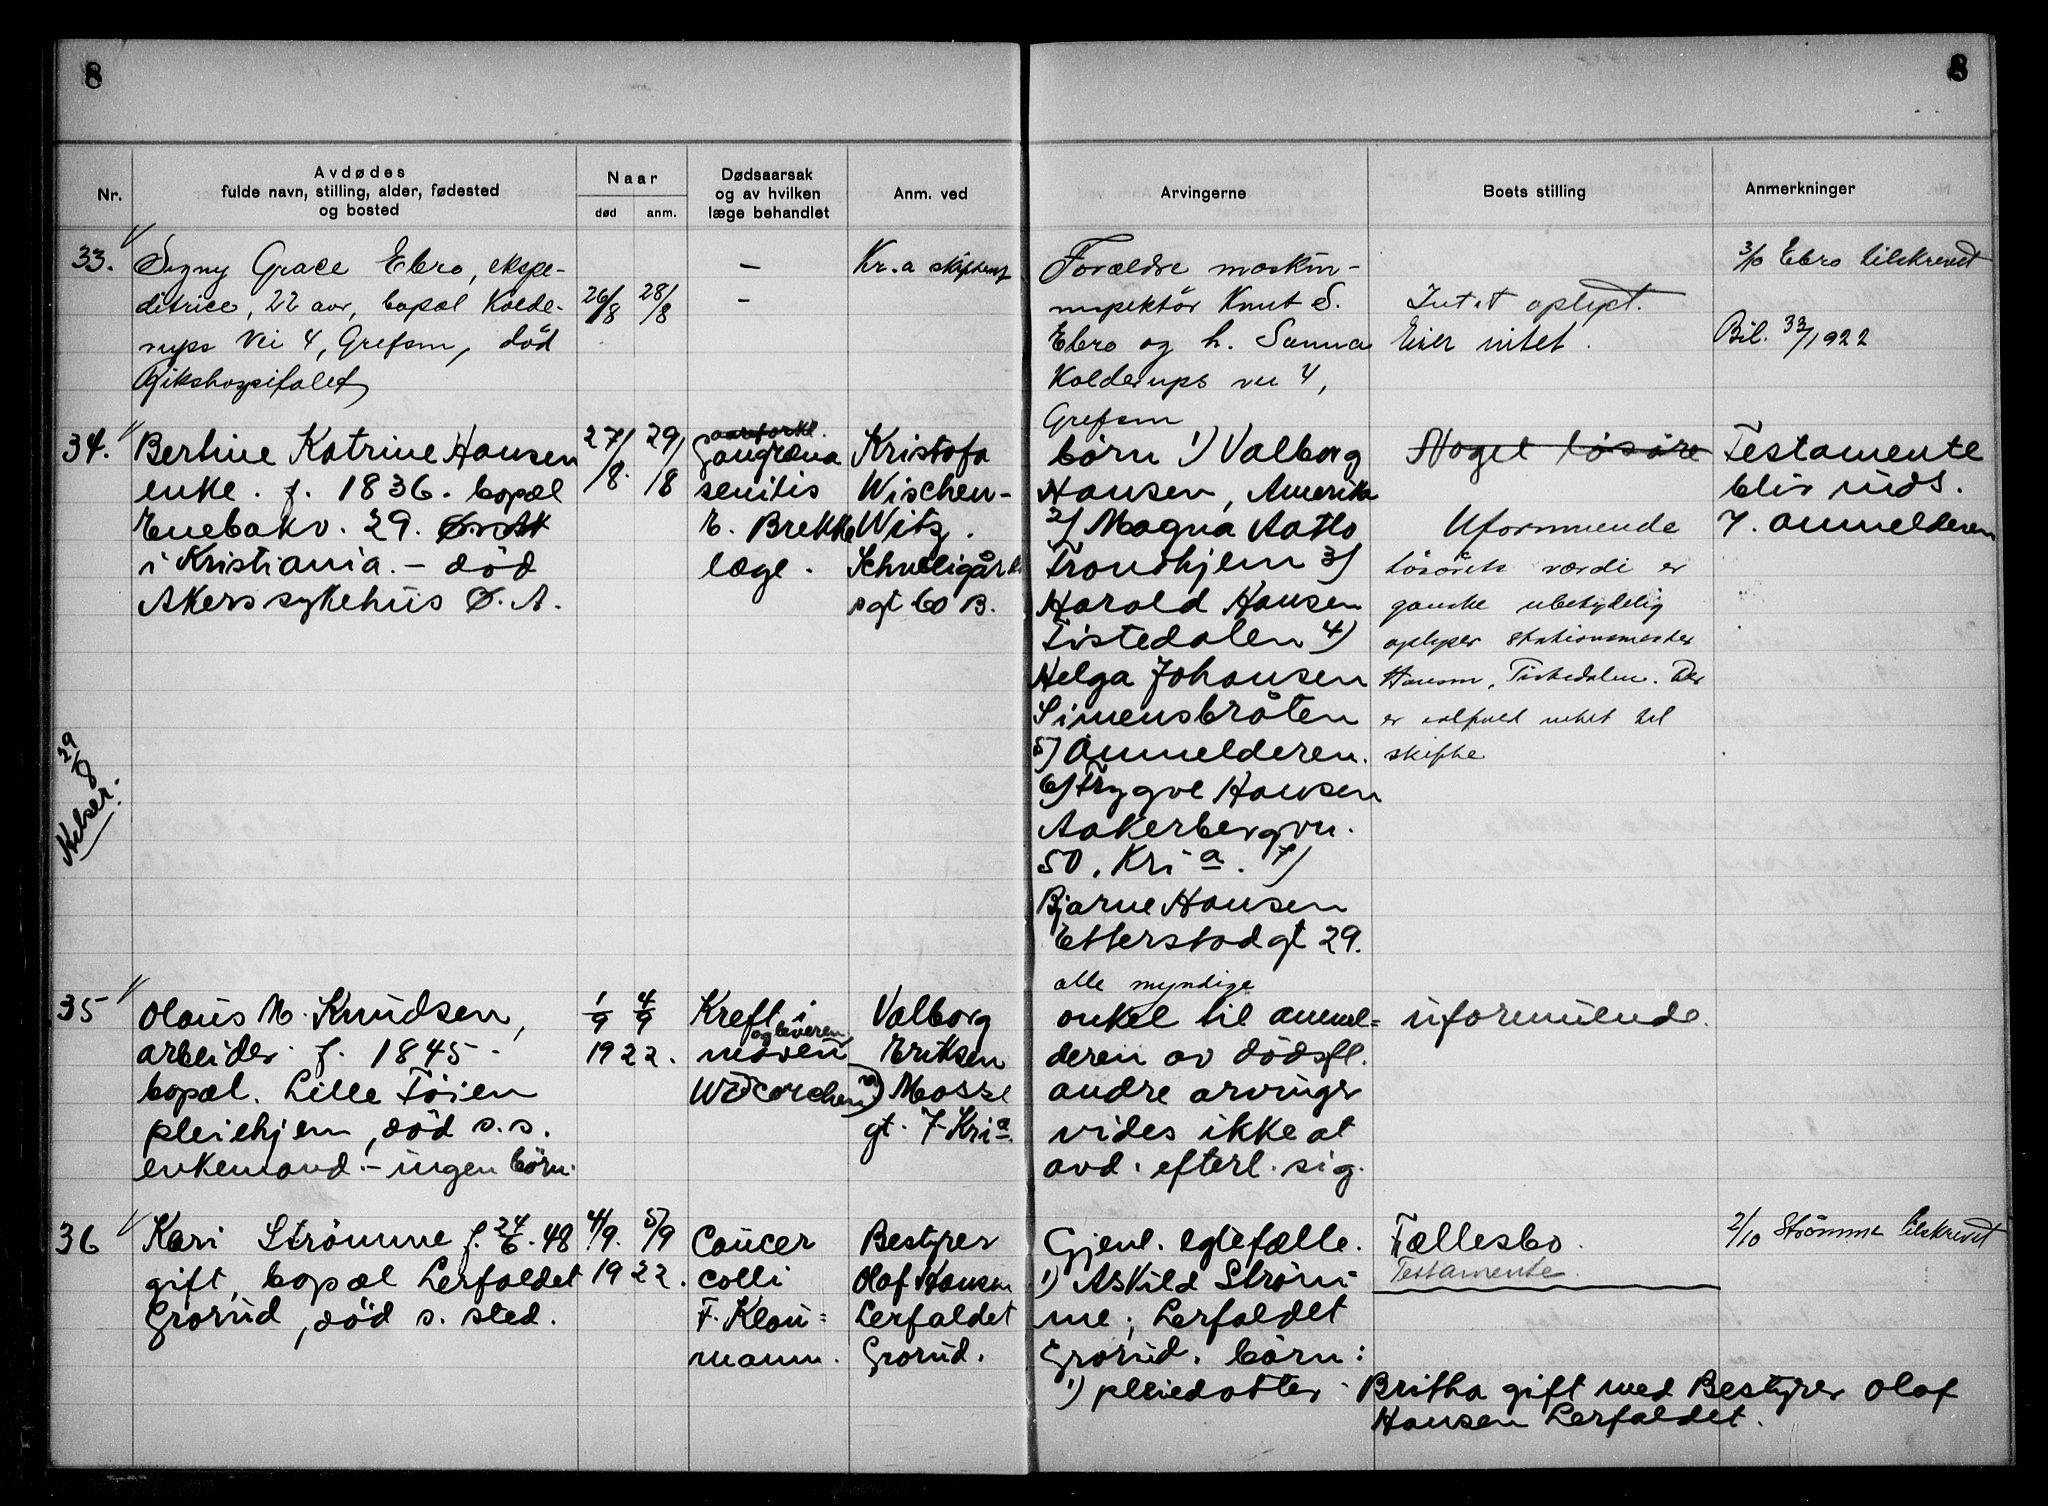 8
8
Nr.
Avdødes
fulde navn, stilling, alder, fødested
og bosted
Naar
død
anm.
Dødsaarsak
og av hvilken
læge behandlet
Anm. ved
Arvingerne
Boets stilling
Anmerkninger
33.
Signy Grace Ebro, ekspe-
ditrice, 22 aar, bopæl Kolde-
rups vei 4, Grefsen, død
Rikshospitalet
26/8
28/8
—
—
Kr.a skifteret
Forældre maskin-
inspektör Knut S.
Ebro og h. Sanna
Kolderups vei 4,
Grefsen
Intet oplyst.
Eier intet.
3/10 Ebro tilskrevet
Bil. 33/1922
34.
Bertine Katrine Hansen
enke. f. 1836. bopæl
Enebakv. 29. Ø. Ak
i Kristiania. – död
Akers sykehus Ø. A.
27/8.
29/8
aareforkl.
Gangræna
senilis
E. Brekke
læge.
Kristofa
Wischen-
Witz.
Schweigårds
gt 60 B.
børn 1) Valborg
Hansen, Amerika
2) Magna Aatto
Trondhjem 3)
Harald Hansen
Tistedalen 4)
Helga Johansen
Simensbråten
5) Anmelderen.
6) Trygve Hansen
Aakerbergvn.
50. Kria. 7)
Bjarne Hansen
Etterstadgt 29.
alle myndige
Noget løsøre
Uformuende
Løsörets værdi er
ganske ubetydelig
oplyser stationsmester
Hansen, Tistedalen. Der
er ialfald intet til
skifte
Testamente
blir inds.
7. anmelderen
29/8
Kilser:
35
Olaus M. Knudsen,
arbeider f. 1845.
bopæl. Lille Töien
pleiehjem, död s. s.
enkemand. – ingen børn.
1/9
4/9
1922.
Kreft i
og leveren
maven
Valborg
Eriksen
Mosse
gt. 7 Kria.
onkel til anmel=
deren av dödsfl.
andre arvinger
vides ikke at
avd. efterl. sig.
uformuende.
36
Kari Strømme f. 24/6. 48
gift, bopæl Lerfaldet
Grorud, död s. sted.
4/9.
5/9
1922.
Cancer
colli
F. Klou=
mann.
Bestyrer
Olaf Hansen
Lerfaldet
Grorud.
Gjenl. egtefælle.
1) Askild Ström-
me, Lerfaldet
Grorud. børn:
1) pleiedatter - Britha gift med Bestyrer Olaf
Hansen Lerfaldet.
Fællesbo.
Testamente.
2/10 Strömme tilskrevet